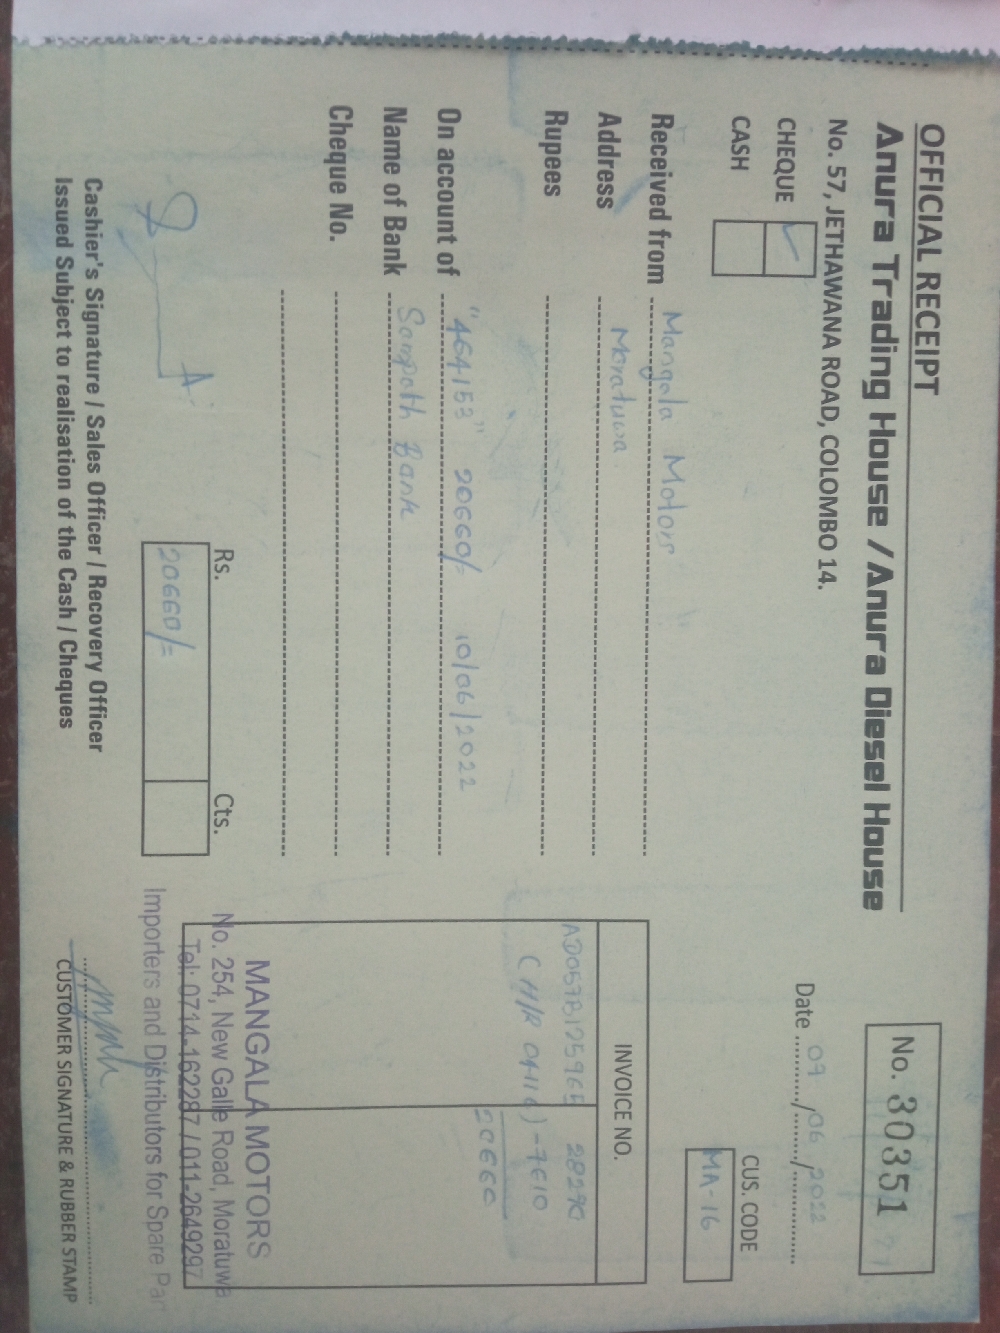 OFFICIAL RECEIPT
Anura Trading House / Anura Diesel House
No. 57, JETHAWANA ROAD, COLOMBO 14.
No. 30351
CHEQUE ✓
CASH
Date 09/06/2022
CUS. CODE
MA-16
Received from Mangala Motors
Address Moratuwa
Rupees
On account of "464153" 20660/= 10/06/2022
Name of Bank Sampath Bank
Cheque No.
INVOICE NO.
AD057B125965 28290
(H/R 04116) -7610
20660
Rs. Cts.
20660/=
MANGALA MOTORS
No. 254, New Galle Road, Moratuwa
Tel: 0714-162287 / 011-2649297
Importers and Distributors for Spare Par
Cashier's Signature / Sales Officer / Recovery Officer
Issued Subject to realisation of the Cash / Cheques
CUSTOMER SIGNATURE & RUBBER STAMP